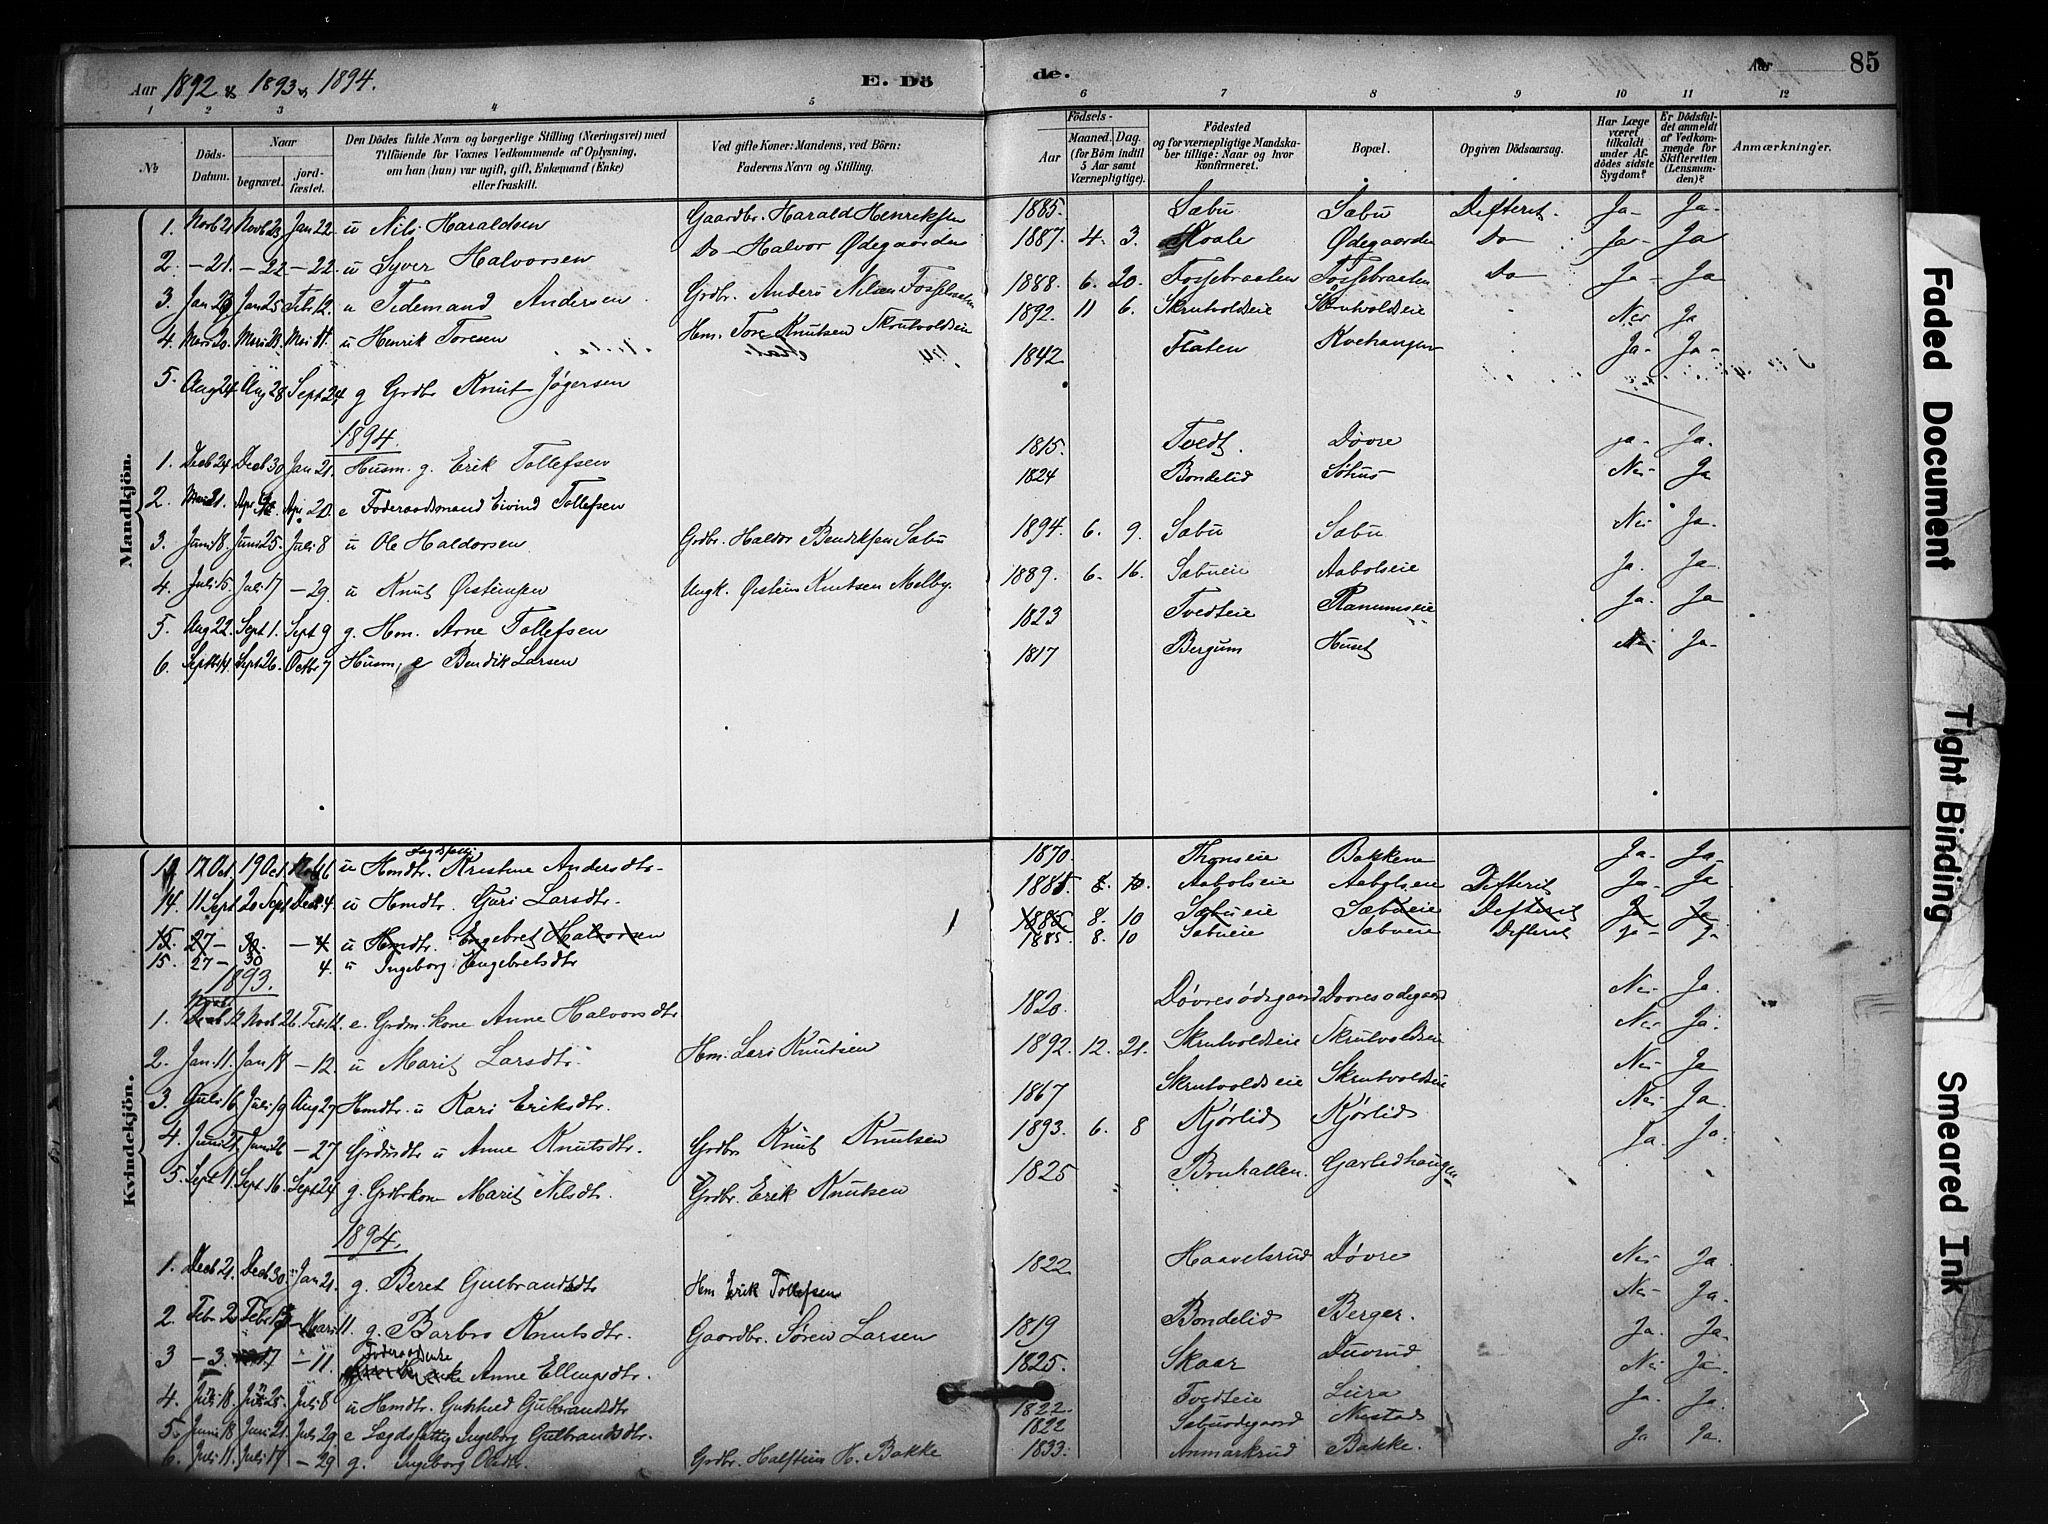 Aar 1892 & 1893 & 1894. E. Dö de. Aar 85
1 2 3 4 5 6 7 8 9 10 11 12
№ Döds-Datum. Naar begravet. jordfæstet. Den Dödes fulde Navn og borgerlige Stilling (Næringsvei) med Tilföiende for Voxnes Vedkommende af Oplysning, om han (hun) var ugift, gift, Enkemand (Enke) eller fraskilt. Ved gifte Koner: Mandens, ved Börn: Faderens Navn og Stilling. Födsels- Aar Maaned. Dag. (for Börn indtil 5 Aar samt Værnepligtige). Födested og for værnepligtige Mandskaber tillige: Naar og hvor konfirmeret. Bopæl. Opgiven Dödsaarsag. Har Læge været tilkaldt under Afdödes sidste Sygdom? Er Dödsfaldet anmeldt af Vedkommende for Skifteretten (Lensmanden)? Anmærkninger.
Mandkjön.
1. Novb 21 Novb 23 Jan 22 u Nils Haraldsen Gaardbr. Harald Henriksen 1885. Sæbu Sæbu Difterit. Ja- Ja-
2. -21. -22 -22 u Syver Halvorsen Do- Halvor Ødegaarden 1887. 4. 3. Hvale Ødegaarden Do Ja- Ja
3. Jan 20 Jan 25 Feb 12. u Tidemand Andersen. Grdbr. Anders Nilsen Fossebraaten 1888. 6. 20. Fossebraaten Fossebraaten Do Ja- Ja
4. Mars 20. Mars 21. Mai 11. u Henrik Toresen Hm. Tore Knutsen Skrutvoldseie 1892. 11 6. Skrutvoldseie Skrutvoldseie Nei Ja
5. Aug 24 Aug 28 Sept 24 g Grdbr Knut Jøgersen 1842 Fløten Kvehaugen Ja- Ja-
1894.
1. Decb 24 Decb 30 Jan 21. Husm. g. Erik Tollefsen 1815. Tvedt. Døvre Ja- Ja.
2. Mars 21. Apr Apr 20. e Føderaadsmand Eivind Tollefsen 1824 Bondelid Nei- Ja
3. Juni 18. Juni 25. Juli 8 u Ole Haldorsen Grdbr. Haldor Bendiksen Sæbu 1894. 6. 9. Sæbu Sæbu Nei- Ja.
4. Juli 15. Juli 17 -29. u Knut Østensen Ungk. Østein Knutsen Melby. 1889. 6. 16. Sæbueie Aabolseie Ja. Ja.
5. Aug 22. Sept 1. Sept 9 g. Hm. Arne Tollefsen 1823 Tvedteie Ranumseie Ja. Ja
6. Septb 14 Sept 26. Octbr 7 Husm. e Bendik Larsen 1817 Bergum Huset Nei Ja-
Kvindekjön.
17 Oct. 19 Oct. u Hmdtr. Kristine Andersdtr. 1870. Thonseie Bakkene Ja- Ja-
14. 11 Sept 20 Sept Decb 4 u Hmdtr. Guri Larsdtr. 1885 8. 10. Aabolseie Aabolseie Difterit Ja- Ja
15. 27- 30. -4 u Hmdtr. Engebret Halvorsen 1885 8. 10 Sæbueie Sæbueie Difterit Ja Ja
15. 27- 30 4. u Ingeborg Engebretsdtr 1885. 8. 10 Sæbueie Sæbueie Difterit Ja- Ja
1893.
1. Novb 12 Novb 26. Feb 12. e. Grdm. kone Anne Halvorsdtr 1820. Døvresødegaard Døvresødegaard Nei- Ja.
2. Jan 11. Jan 18 -12 u Marit Larsdtr. Hm. Lars Knutsen 1892. 12. 21. Skrutvoldseie Skrutvoldseie Nei- Ja.
3. Juli 16 Juli 19 Aug 27 Hmdtr. u Kari Eriksdtr. 1867 Skrutvoldseie Skrutvoldseie Nei- Ja
4. Juni 21. Juni 26 -27 Grdbrdtr u Anne Knutsdtr. Grdbr Knut Knutsen 1893. 6. 8 Kjørlid Kjørlid Nei- Ja.
5. Sept 11. Sept 16. Sept 24 g. Grdbrkone Marit Nilsdtr. Grdbr. Erik Knutsen 1825 Bruhallen. Garlidhaugen Ja. Ja.
1894.
1. Decb 21. Decb 30. Jan 21. g. Beret Gulbrandsdtr Hm Erik Tollefsen 1822 Haavelsrud Døvre Nei- Ja
2. Febr 2 Febr 17 -Mars 11. g. Barbro Knutsdtr. Gaardbr. Søren Larsen 1819 Bondelid Berger. Nei- Ja.
3 -3. 17 -11. Føderaadsenke Anne Ellingsdtr. 1825. Skaar Duvrud Ja. Ja.
4. Juni 18. Juni 25. Juli 8 u Hmdtr. Gulbrandsdtr 1822. Tvedteie Leira Nei Ja-
5. Juni 18 Juni 21. Juli 29 e Lægdsfattig Ingeborg Gulbrandsdtr. 1822 Sæbuødegaard Nestad Ja. Ja.
6. Juli 11. Juli 17 -29 g. Ingeborg Olsdtr. Grdbr. Halstein H. Bakke 1833. Anmarkrud Bakke. Ja Ja.
Faded Document
Tight Binding
Smeared Ink